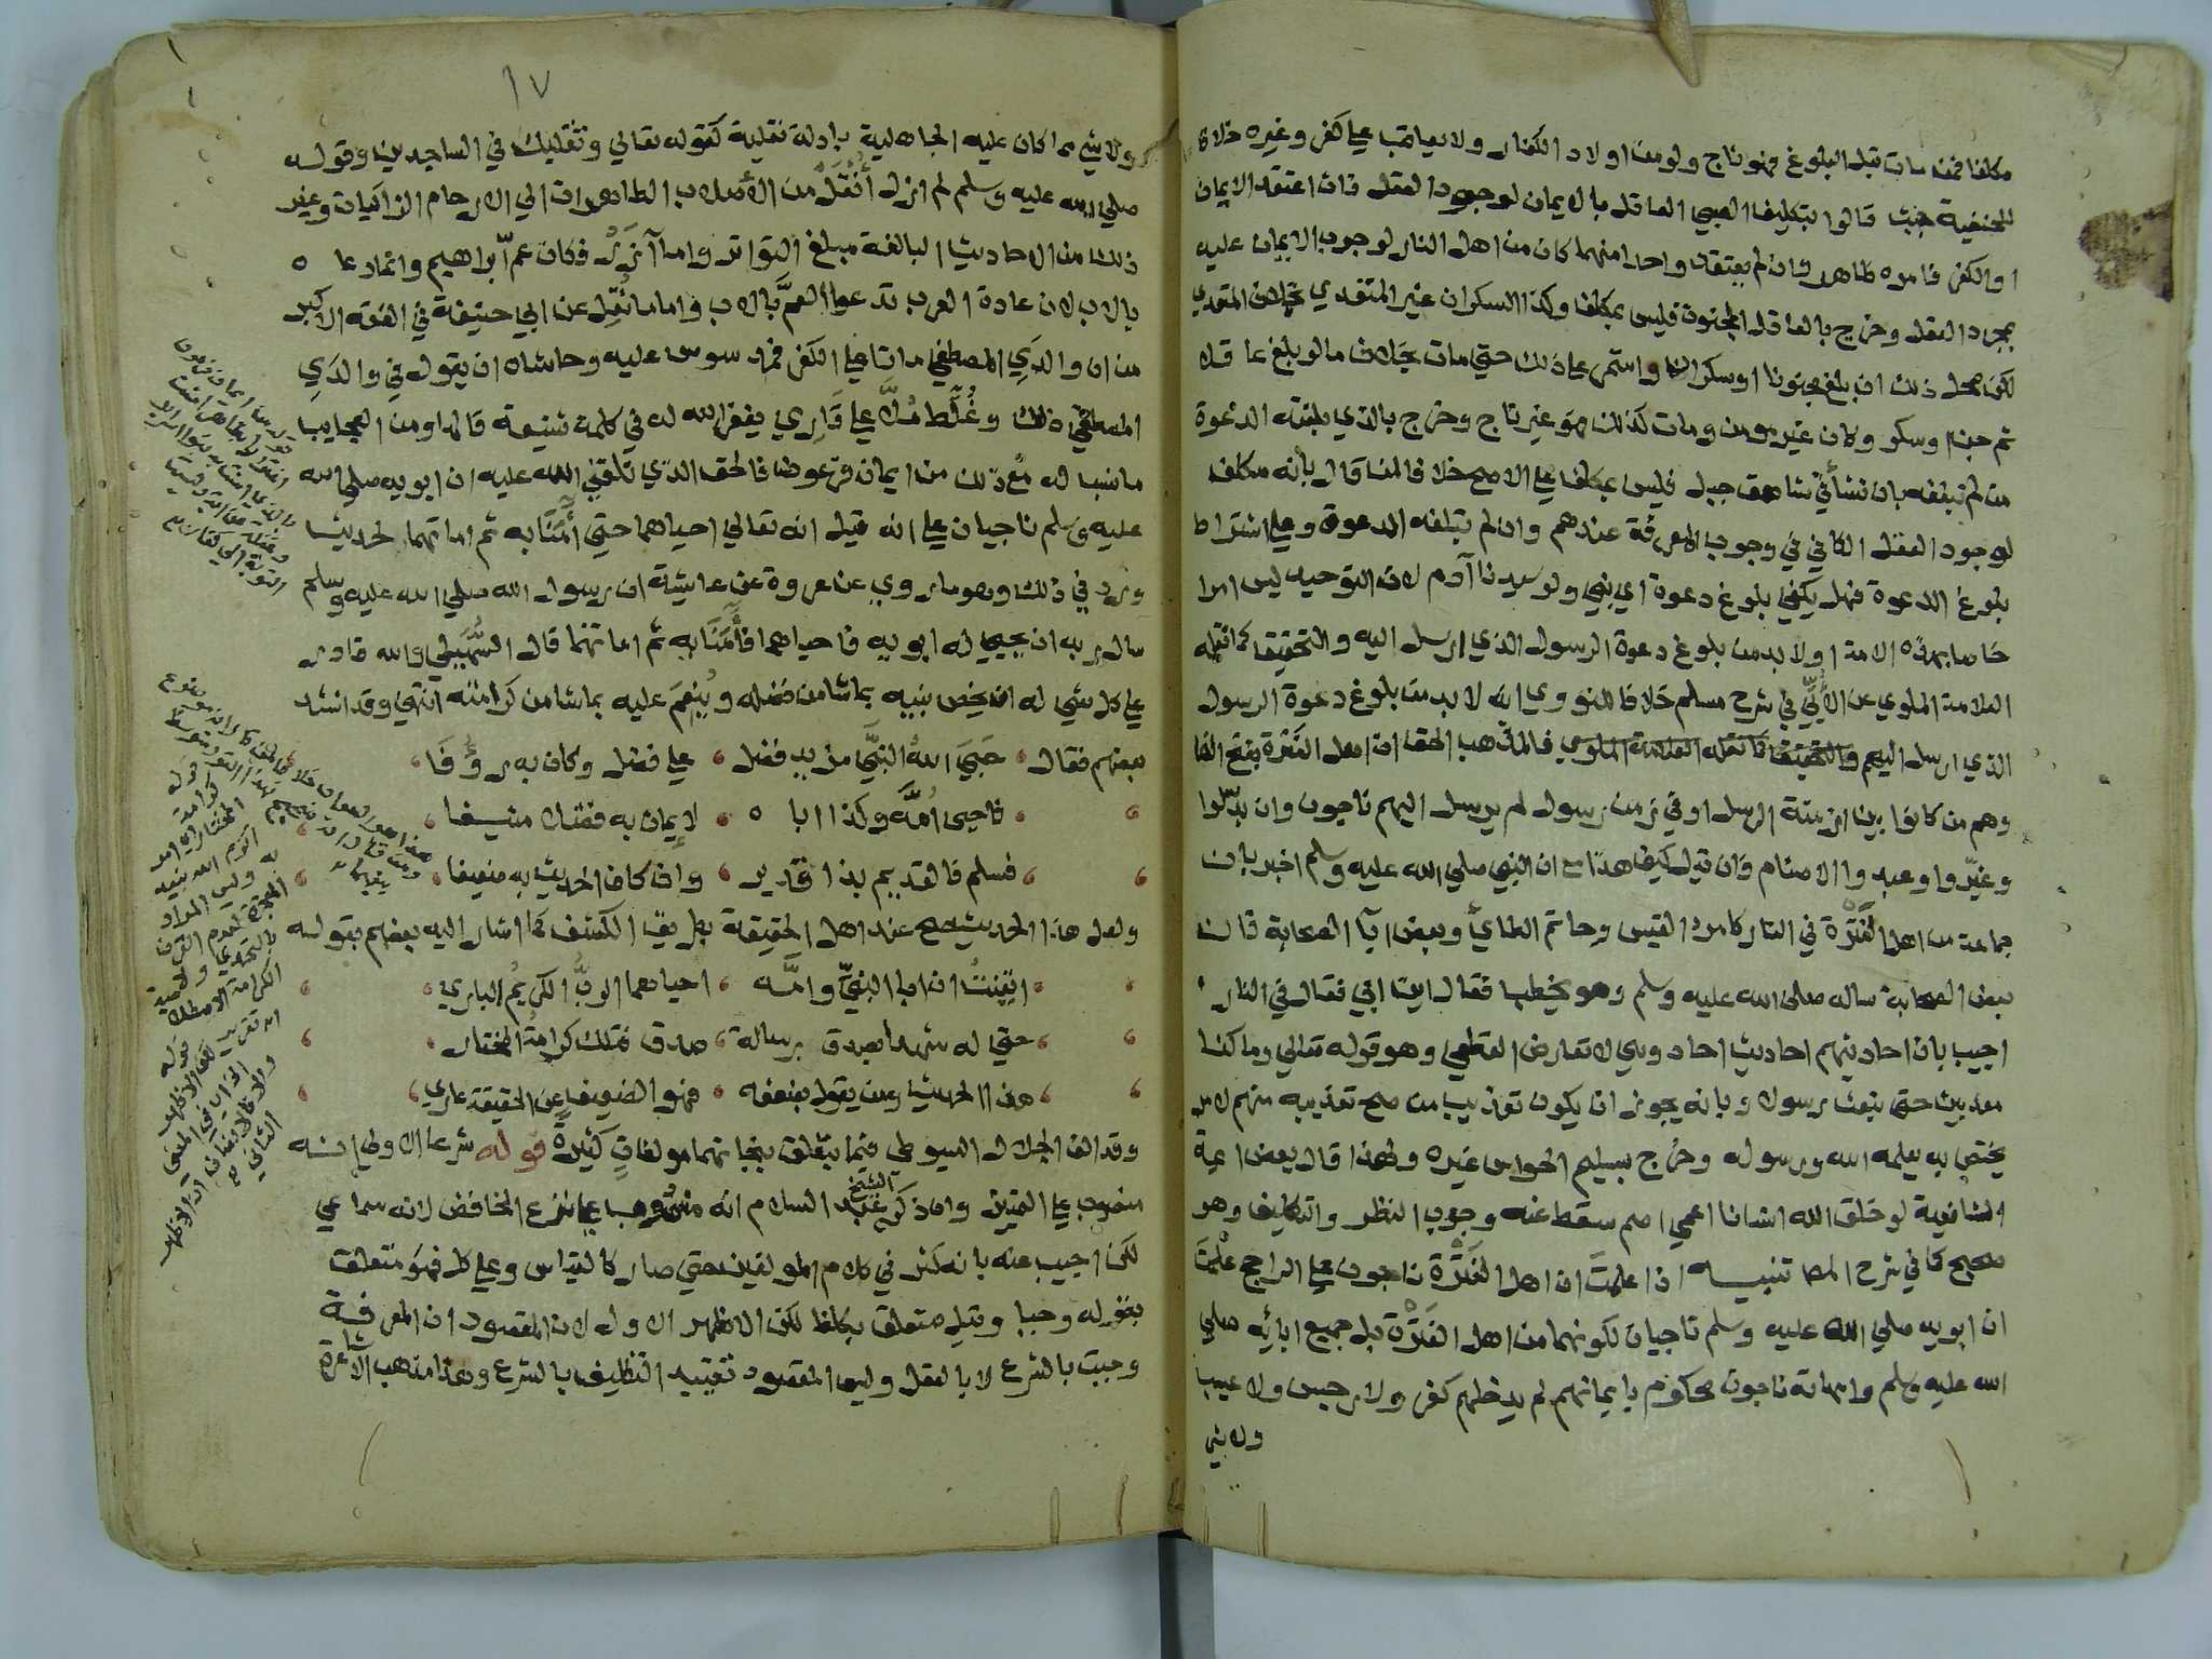 مكلفا فمن مات قبل البلوغ فهو ناج ولو من اولاد الكفار ولا يعاقب علي كفر وغيره خلافا
للحنفية حيث قالوا بتكليف الصبي العاقل بالايمان لوجود العقل فان اعتقد الايمان
او الكفر فامره ظاهر وان لم يعتقد واحدا منهما كان من اهل النار لوجوب الايمان عليه
بمجرد العقل وخرج بالعاقل المجنون فليس بمكلف وكذا السكران غير المتعدي بخلاف المتعدي
لكن محل ذلك ان بلغ مجنونا او سكرانا واستمر علي ذلك حتي مات بخلاف ما لو بلغ عاقلا
ثم جن او سكر وكان غير مومن ومات كذلك فهو غير ناج وخرج بالذي بلغته الدعوة
من لم تبلغه بان نشأ في شاهق جبل فليس بمكلف علي الاصح خلافا لمن قال بأنه مكلف
لوجود العقل الكافي في وجوب المعرفة عندهم وان لم تبلغه الدعوة وعلي اشتراط
بلوغ الدعوة فهل يكفي بلوغ دعوة اي نبي ولو سيدنا آدم لان التوحيد ليس امرا
خاصا بهذه الامة او لا بد من بلوغ دعوة الرسول الذي ارسل اليه والتحقيق كما نقله
العلامة الملوي عن الأبّي في شرح مسلم خلافا للنووي انه لا بد من بلوغ دعوة الرسول
الذي ارسل اليهم والتحقيق كما نقله العلامة الملوي فالمذهب الحق ان اهل الفترة بفتح الفا
وهم من كانوا بين ازمنة الرسل او في زمن رسول لم يرسل اليهم ناجون وان بدّلوا
وغيّروا وعبدوا الاصنام وان قيل كيف هذا مع ان النبي صلي الله عليه وسلم اخبر بان
جماعة من اهل الفَتْرة في النار كامرء القيس وحاتم الطاي وبعض آبا الصحابة فان
بعض الصحابة ساله صلى الله عليه وسلم وهو يخطب فقال اين ابي فقال في النار
اجيب بان احاديثهم احاديث احاد وهي لا تعارض القطعي وهو قوله تعالي وما كنا
معذبين حتى نبعث رسولا وبانه يجوز ان يكون تعذيب من صح تعذيبه منهم لامر
يختص به يعلمه الله ورسوله وخرج بسليم الحواس غيره ولهذا قال بعض ايمة
الشافعية لو خلق الله انسانا اعمي اصم سقط عنه وجوب النظر والتكليف وهو
صحيح كما في شرح المصـ تنبيه اذا علمتَ ان اهل الفَتْرة ناجون علي الراجح علمْتَ
ان ابويه صلي الله عليه وسلم ناجيان لكونهما من اهل الفَتْرة بل جميع ابائِه صلي
الله عليه وسلم وامهاته ناجون محكوم بايمانهم لم يدخلهم كفر ولا رجس ولا عيب
ولا شي
١٧
ولا شي مما كان عليه الجاهلية بادلة نقلية كقوله تعالي وتقلبك في الساجدين وقوله
صلي الله عليه وسلم لم ازل أُنْقَلُ من الأصلاب الطاهرات الي الارحام الزاكيات وغير
ذلك من الاحاديث البالغة مبلغ التواتر واما آزَرْ فكان عمّ ابراهيم وانما دعا ٥
بالاب لان عادة العرب تدعوا العمَّ بالاب واما ما نُقِل عن ابي حنيفة في الفقه الاكبر
من ان والدَي المصطفي ماتا علي الكفر فمدسوس عليه وحاشاه ان يقول في والدَي
المصطفي ذلك وغُلِّط مُلَّا علي قَارِي يغفر الله له في كلمة شنيعة قالها ومن العجايب
ما نسب له مع ذلك من ايمان فرعون فالحق الذي نلقي الله عليه ان ابويه صلي الله
عليه وسلم ناجيان علي انه قيل انه تعالي احياهما حتي أَمَنَا به ثم اماتهما لحديث
ورد في ذلك وهو ما روي عن عروة عن عايشة ان رسول الله صلي الله عليه وسلم
سال ربه ان يحيي له ابويه فاحياهما فأَمَنَا به ثم اماتهما قال السُّهَيلي والله قادر
علي كل شي له ان يخص نبيه بما شا من فضله ويُنعِمَ عليه بما شا من كرامته انتهي وقد انشد
بعضهم فقال حَبَي اللهُ النبيَّ مزيد فضل علي فضل وكان به رؤُفَا
فاحيى اُمَّه وكذا ابا ٥ لإيمان به فضلا منيفا
فسلم فالقديم بذا قدير وان كان الحديث به ضعيفا
ولعل هذا الحديث صح عند اهل الحقيقة بطريق الكشف كما اشار اليه بعضهم بقوله
ايقنتُ ان ابا النبيّ وامَّه احياهما الربُّ الكريمُ الباري
حتي له شهدا بصدق برسالة صدق فتلك كرامة المختار
هذا الحديث ومن يقول بضعفه فهو الضعيف عن الحقيقة عاري
وقد الف الجلال السيوطي فيما يتعلق بنجاتهما مولفاتٍ كثيرةً قوله شرعا الاولي انه
منصوب علي التمييز وان ذكر الشيخ عبد السلام انه منصُوب علي نزع الخافض لانه سماعي
لكن اجيب عنه بانه كثر في كلام المولفين حتي صار كالقياس وعلي كل فهو متعلق
بقوله وجبا وقيل متعلق بكلف لكن الاظهر الاول لان المقصود ان المعرفة
وجبت بالشرع لا بالعقل وليس المقصود تقييد التكليف بالشرع وهذا مذهب الأشاعرة